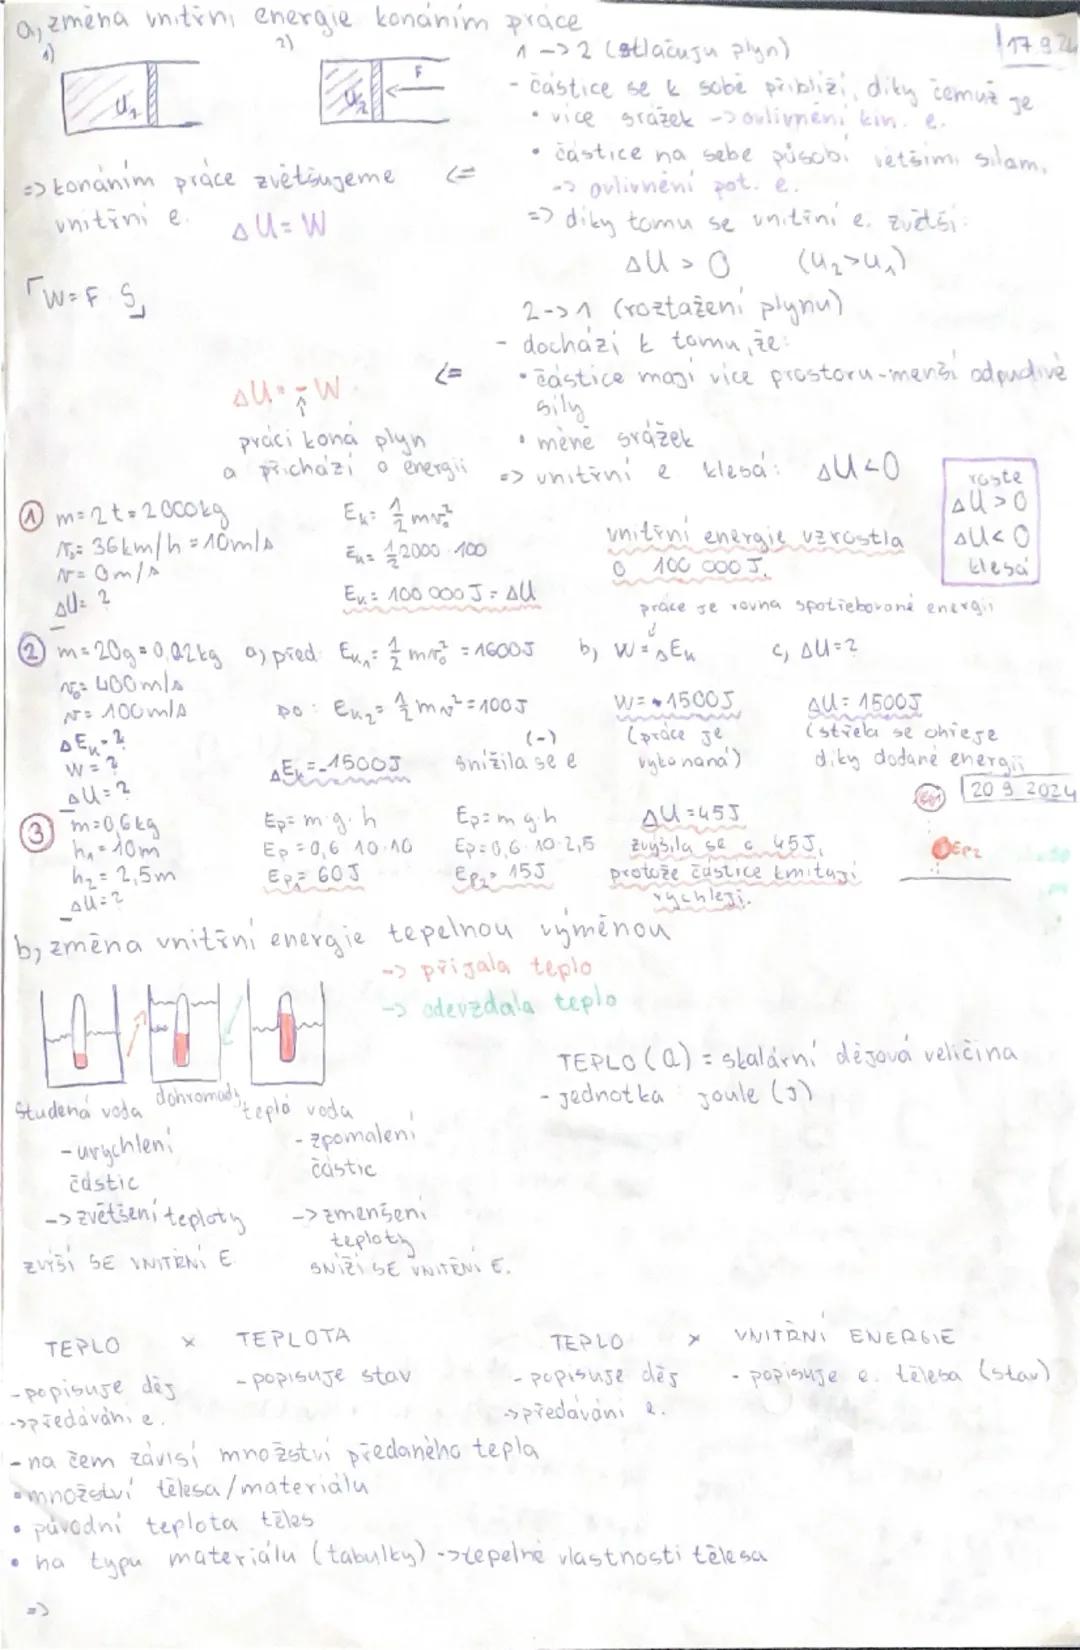 a, změna vnitřní energie konáním práce
17.9.24
1)
2)
U₁
U₂
F
1 -> 2 (stlačuju plyn)
- částice se k sobě přiblíží, díky čemuž je
• více srážek -> ovlivnění kin. e.
• částice na sebe působí většími silami,
-> ovlivnění pot. e.
=> díky tomu se vnitřní e. zvětší:
ΔU > 0 (U₂>U₁)
=> konáním práce zvětšujeme <=
vnitřní e. ΔU = W
W = F · S
2 -> 1 (roztažení plynu)
- dochází k tomu, že:
• částice mají více prostoru - menší odpudivé
síly
• méně srážek
=> vnitřní e klesá: ΔU < 0
<=
ΔU = -W
↑
práci koná plyn
a přichází o energii
roste
ΔU > 0
ΔU < 0
klesá
① m = 2t = 2000kg
v₀ = 36km/h = 10m/s
v = 0m/s
ΔU = ?
Eₖ = ½mv₀²
Eₖ = ½ 2000 · 100
Eₖ = 100 000 J = ΔU
vnitřní energie vzrostla
o 100 000 J.
práce se rovná spotřebované energii
② m = 20g = 0,02kg
v₀ = 400m/s
v = 100m/s
ΔEₖ = ?
W = ?
ΔU = ?
a) před: Eₖ₁ = ½mv₀² = 1600J
po: Eₖ₂ = ½mv² = 100J
ΔEₖ = -1500J
(-)
snížila se e
b, W = ΔEₖ
W = 1500J
(práce je
vykonaná)
c, ΔU = ?
ΔU = 1500J
(střela se ohřeje
díky dodané energii
20 9 2024
③ m = 0,6kg
h₁ = 10m
h₂ = 2,5m
ΔU = ?
Ep = m · g · h
Ep = 0,6 · 10 · 10
Ep₁ = 60J
Ep = m · g · h
Ep = 0,6 · 10 · 2,5
Ep₂ = 15J
ΔU = 45J
zvýšila se o 45J,
protože částice kmitají
rychleji.
Ep1
Ep2
b, změna vnitřní energie tepelnou výměnou
-> přijala teplo
-> odevzdala teplo
studená voda
dohromady
teplá voda
- urychlení
částic
-> zvětšení teploty
ZVÝŠÍ SE VNITŘNÍ E
- zpomalení
částic
-> zmenšení
teploty
SNÍŽÍ SE VNITŘNÍ E.
TEPLO (Q) = skalární dějová veličina
- jednotka joule (J)
TEPLO × TEPLOTA
- popisuje děj - popisuje stav
-> předávání e.
TEPLO × VNITŘNÍ ENERGIE
- popisuje děj - popisuje e. tělesa (stav)
-> předávání e.
- na čem závisí množství předaného tepla
• množství tělesa/materiálu
• původní teplota těles
• na typu materiálu (tabulky) -> tepelné vlastnosti tělesa
=>